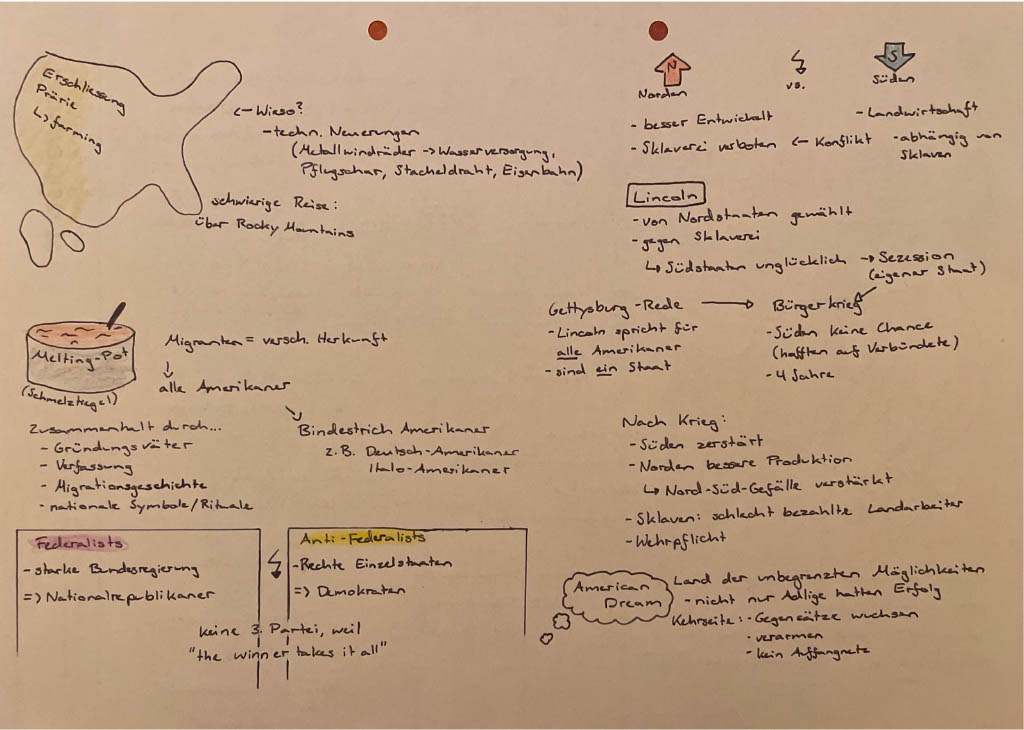 Erschliessung
Prärie
↳ farming
<- Wieso?
- techn. Neuerungen
(Metallwindräder -> Wasserversorgung,
Pflugschar, Stacheldraht, Eisenbahn)
schwierige Reise:
über Rocky Mountains
Melting-Pot
(Schmelztiegel)
Migranten = versch. Herkunft
↓
alle Amerikaner
Bindestrich Amerikaner
z.B. Deutsch-Amerikaner
Italo-Amerikaner
Zusammenhalt durch...
- Gründungsväter
- Verfassung
- Migrationsgeschichte
- nationale Symbole/Rituale
Federalists
- starke Bundesregierung
=> Nationalrepublikaner
Anti-Federalists
- Rechte Einzelstaaten
=> Demokraten
keine 3. Partei, weil
"the winner takes it all"
N
Norden
vs.
S
Süden
- besser Entwickelt
- Sklaverei verboten <- Konflikt
- Landwirtschaft
- abhängig von
Sklaven
Lincoln
- von Nordstaaten gewählt
- gegen Sklaverei
↳ Südstaaten unglücklich -> Sezession
(eigener Staat)
Gettysburg-Rede -> Bürgerkrieg
- Lincoln spricht für
alle Amerikaner
- sind ein Staat
- Süden keine Chance
(hofften auf Verbündete)
- 4 Jahre
Nach Krieg:
- Süden zerstört
- Norden bessere Produktion
↳ Nord-Süd-Gefälle verstärkt
- Sklaven: schlecht bezahlte Landarbeiter
- Wehrpflicht
American
Dream
Land der unbegrenzten Möglichkeiten
- nicht nur Adlige hatten Erfolg
Kehrseite: - Gegensätze wuchsen
- verarmen
- kein Auffangnetz